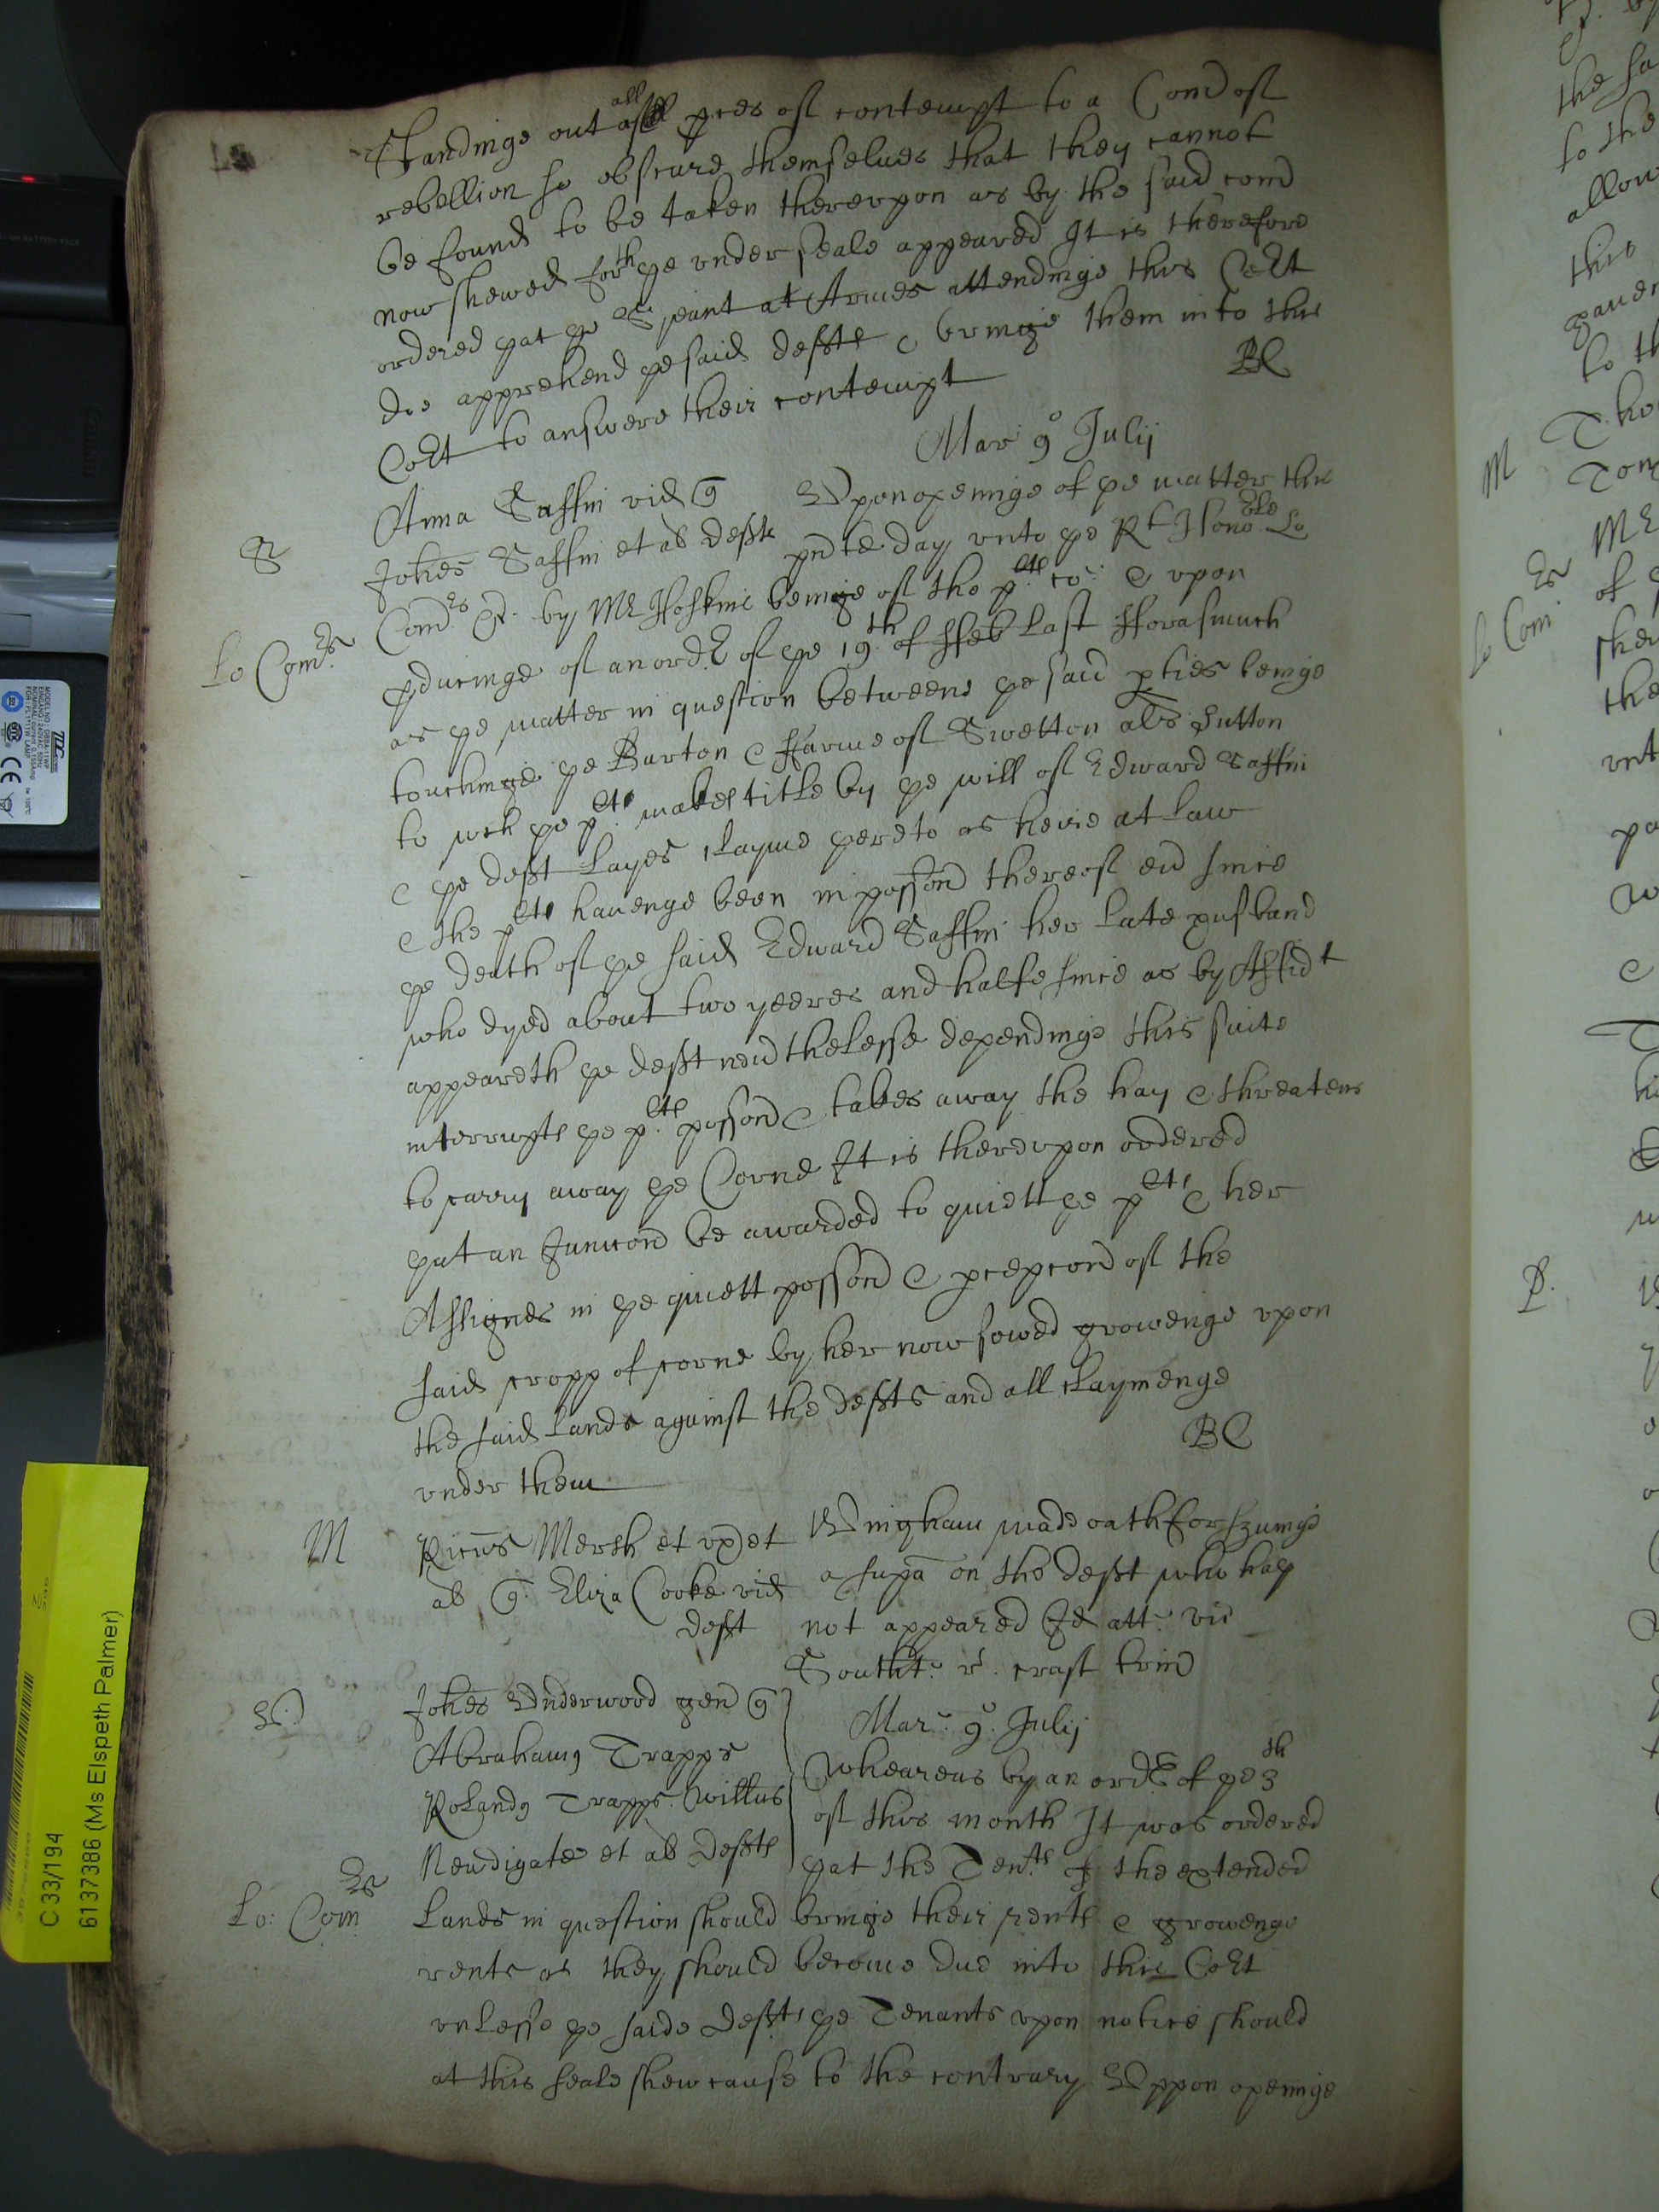 Standinge out all pces of contempt to a Com̃ of
rebellion so obscure themselues that they cannot
be found to be taken therevpon as by the said com̃
now shewed forth ye vnder seale appeared It is therefore
ordered yat ye Serieant at Armes attendinge this Cort
doe apprehend ye said defts & bringe them into this
Cort to answere their contempt
BC
Mar 9o Julij
S
Anna Saffin vid q Vpon openinge of ye matter this
Johes Saffin et al defts pnte day vnto ye Rt Honoble Lo
Lo Comrs
Comrs &. by Mr Hoskins beinge of the plts co: & vpon
pducinge of an ordr of ye 19th of ffeb last fforasmuch
as ye matter in question betweene ye said pties beinge
touchinge ye Barton & ffarme of Swetton als Sutton
to wch ye plt makes title by ye will of Edward Saffin
& ye deft layes clayme yereto as heire at law
& the plt hauenge been in possion thereof eu since
ye death of ye said Edward Saffin her late husband
who dyed about two yeeres and halfe since as by Affidt
appeareth ye deft neuthelesse dependinge this suite
interrupts ye plts possion & takes away the hay & threatens
to carry away ye Corne It is therevpon ordered
yat an Iniuncon be awarded to quiett ye plt & her
Assignes in ye quiett possion & pcepcon of the
said cropp of corne by her now sowed growenge vpon
the said lands against the defts and all claymenge
vnder them
BC
M
Ricus Mersh et vx et Wingham made oath for svinge
al q. Eliza Cooke vid a supa on the deft who hay
deft not appeared Id att. vic
Southt. r. crast trin
Johes Vnderwood gen q
Mar. 9o. Julij
Abrahamus Trapps
Wheareas by an ordr of ye 3th
Rolandus Trapps Willus
of this month It was ordered
Newdigate et al defts
yat the Tents of the extended
Lo: Comrs
Lands in question should bringe their rents & growenge
rents as they should become due into this Cort
vnlesse ye saide defts ye Tenants vpon notice should
at this seale shew cause to the contrary Vppon openinge
C 33/194
61377386 (Ms Elspeth Palmer)